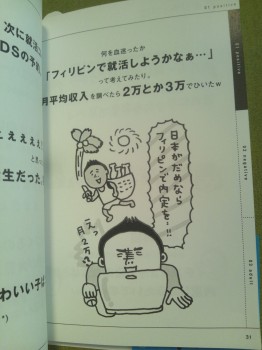 01 positive
何を血迷ったか
「フィリピンで就活しようかなぁ…」
って考えてみたり。
月平均収入を調べたら2万とか3万でひいたw
日本がだめなら
フィリピンで内実を…!!
えっ
月2万!?
次に就活
DSの予
こえええ
生だった
わいい子は
01 positive
02 negative
03 adult
31